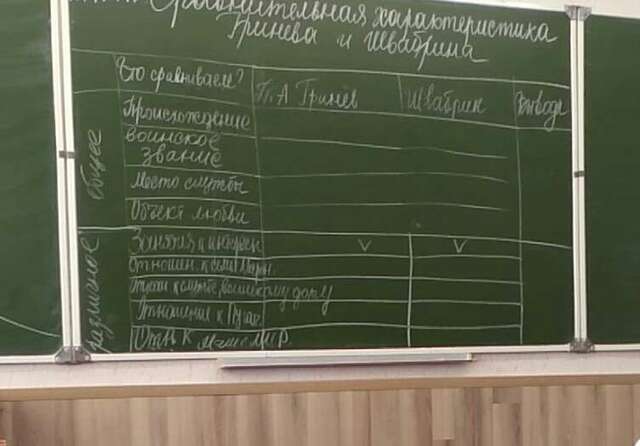 Сравнительная характеристика
Гринева и Швабрина
Что сравниваем?
П.А Гринёв
Швабрин
Выводы
общее
Происхождение
Воинское
звание
Место службы
Объект любви
различное
Занятия и интересы
V
V
Отношен. к семье
Отнош к службе, воинскому долгу
Отношение к
Отн. к